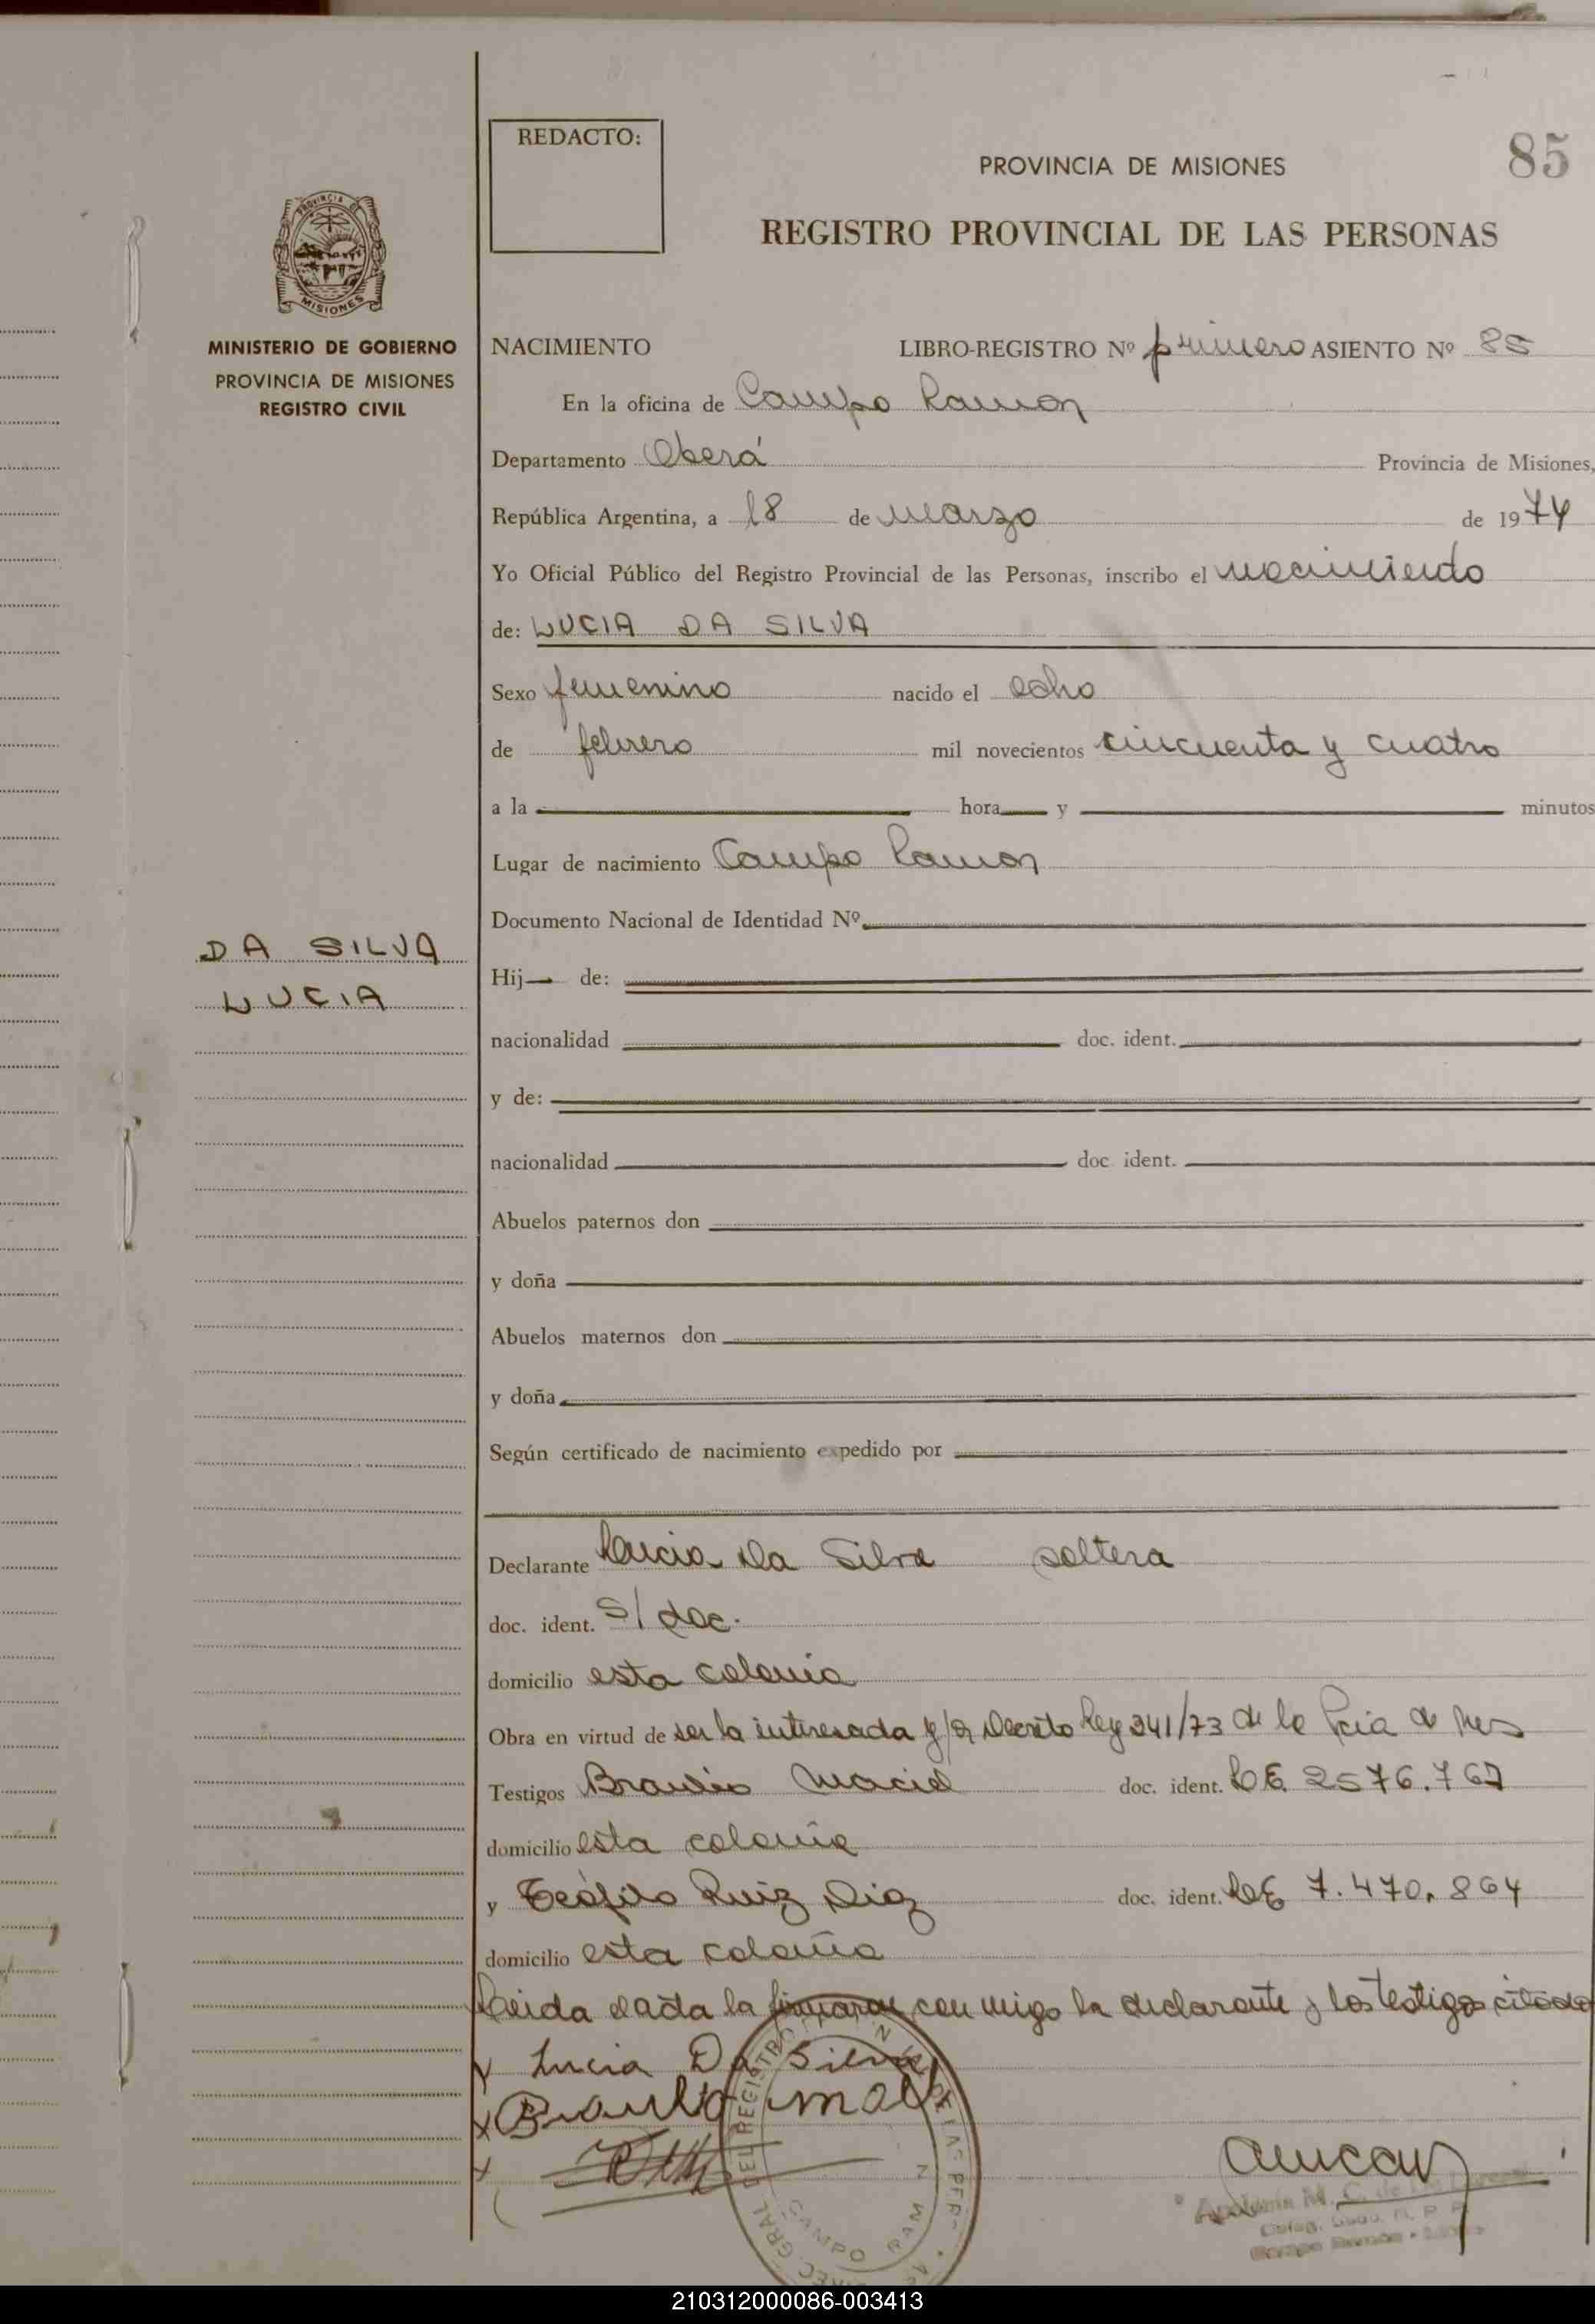 85
REDACTO:
PROVINCIA DE MISIONES
REGISTRO PROVINCIAL DE LAS PERSONAS
PROVINCIA DE
MISIONES
MINISTERIO DE GOBIERNO
PROVINCIA DE MISIONES
REGISTRO CIVIL
DA SILVA
LUCIA
NACIMIENTO LIBRO-REGISTRO Nº primero ASIENTO Nº 85
En la oficina de Campo Ramon
Departamento Oberá Provincia de Misiones,
República Argentina, a 18 de marzo de 1974
Yo Oficial Público del Registro Provincial de las Personas, inscribo el nacimiento
de: LUCIA DA SILVA
Sexo femenino nacido el ocho
de febrero mil novecientos cincuenta y cuatro
a la hora y minutos
Lugar de nacimiento Campo Ramon
Documento Nacional de Identidad Nº
Hij de:
nacionalidad doc. ident.
y de:
nacionalidad doc ident.
Abuelos paternos don
y doña
Abuelos maternos don
y doña
Según certificado de nacimiento expedido por
Declarante Lucia Da Silva soltera
doc. ident. S/ doc.
domicilio esta colonia
Obra en virtud de ser la interesada y/o Decreto Ley 341/73 de la Pcia de Mes
Testigos Braulio Maciel doc. ident. LE. 2576.767
domicilio esta colonia
y Teófilo Ruiz Diaz doc. ident. LE 7.470.864
domicilio esta colonia
Leida el acta la firmaron con migo la declarante y los testigos citados
Lucia Da Silva
Braulio
DEL REGISTRO
CAMPO RAM N
Apolonia M. C. de
210312000086-003413